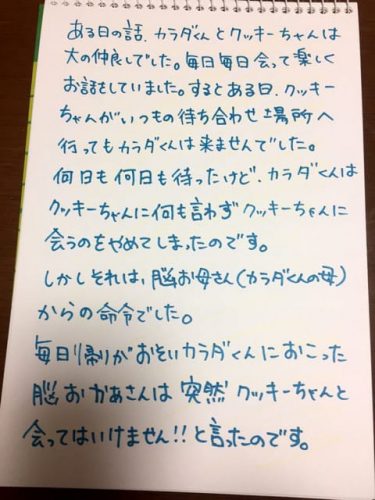 ある日の話、カラダくんとクッキーちゃんは
大の仲良しでした。毎日毎日会って楽しく
お話をしていました。するとある日、クッキー
ちゃんがいつもの待ち合わせ場所へ
行ってもカラダくんは来ませんでした。
何日も何日も待ったけど、カラダくんは
クッキーちゃんに何も言わずクッキーちゃんに
会うのをやめてしまったのです。
しかしそれは、脳お母さん(カラダくんの母)
からの命令でした。
毎日帰りがおそいカラダくんにおこった
脳おかあさんは突然クッキーちゃんと
会ってはいけません!!と言ったのです。